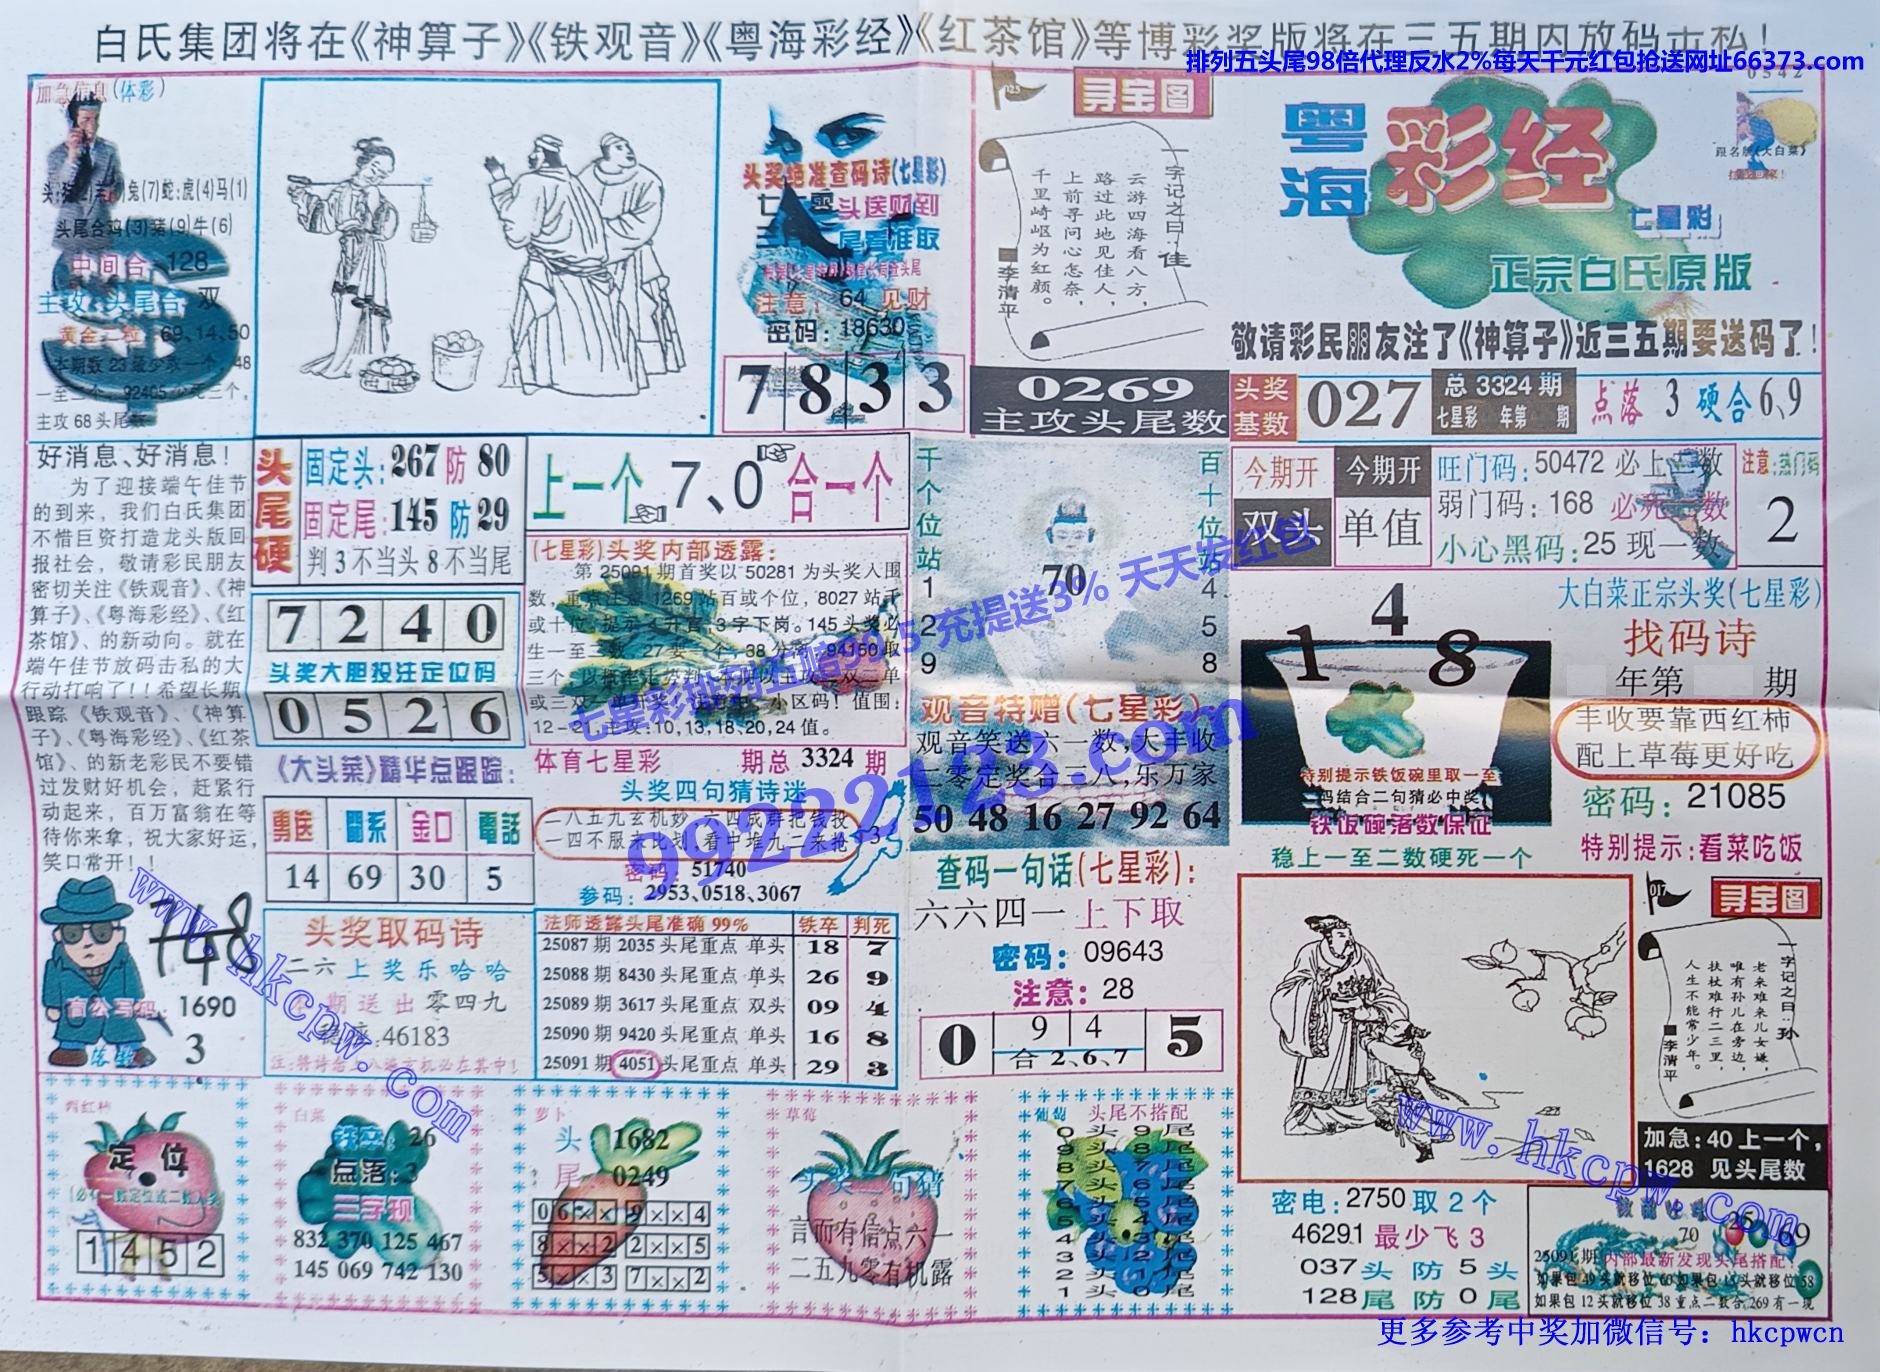 白氏集团将在《神算子》《铁观音》《粤海彩经》《红茶馆》等博彩奖版将在三五期内放码击私！
排列五头尾98倍代理反水2%每天千元红包抢送网址66373.com
加急信息(体彩)
兔(7)蛇:虎(4)马(1)
头尾合鸡(3)猪(9)牛(6)
中间合:128
主攻:头尾合 双
黄金二粒 69、14、50
主攻68头尾数
头奖绝准查码诗(七星彩)
头送财到
注意:64 见财
密码:18630
7 8 3 3
123
寻宝图
一字记之曰:佳
云游四海看八方，
路过此地见佳人，
上前寻问心怎奈，
千里崎岖为红颜。
■李清平
0269
主攻头尾数
0542
粤海彩经
七星彩
正宗白氏原版
跟名版《大白菜》
敬请彩民朋友注了《神算子》近三五期要送码了！
头奖基数
027
总3324期
七星彩 年第 期
点落 3 硬合6、9
好消息、好消息！
为了迎接端午佳节
的到来，我们白氏集团
不惜巨资打造龙头版回
报社会，敬请彩民朋友
密切关注《铁观音》、《神
算子》、《粤海彩经》、《红
茶馆》、的新动向。就在
端午佳节放码击私的大
行动打响了！！希望长期
跟踪《铁观音》、《神算
子》、《粤海彩经》、《红茶
馆》、的新老彩民不要错
过发财好机会，赶紧行
动起来，百万富翁在等
待你来拿，祝大家好运，
笑口常开！！
头尾硬
固定头:267防80
固定尾:145防29
判3不当头8不当尾
7 2 4 0
头奖大胆投注定位码
0 5 2 6
《大头菜》精华点跟踪:
勇送 關系 金口 電話
14 69 30 5
上一个 7、0 合一个
(七星彩)头奖内部透露:
第25091期首奖以50281为头奖入围
12-2 主攻:10,13,18,20,24值。
体育七星彩 期总3324期
头奖四句猜诗迷
二八五九玄机妙 六四成群把钱投
一四不服来比划 看中堆九二来抢
3
密码 51740
参码:2953,0518,3067
千个位站
1
2
9
70
百十位站
4
5
8
观音特赠(七星彩)
观音笑送六一数,大丰收
二零定奖合三八,乐万家
50 48 16 27 92 64
今期开
双头
今期开
单值
旺门码:50472必上一数
弱门码:168 必死一数
小心黑码:25现一数
注意:热门码
2
1 4 8
特别提示铁饭碗里取一至
码结合二句猜必中奖
铁饭碗落数保证
稳上一至二数硬死一个
大白菜正宗头奖(七星彩)
找码诗
年第 期
丰收要靠西红柿
配上草莓更好吃
密码:21085
特别提示:看菜吃饭
748
盲公写码:1690
落数 3
头奖取码诗
二六上奖乐哈哈
期送出零四九
46183
法师透露头尾准确99% 铁卒 判死
25087期2035头尾重点 单头 18 7
25088期8430头尾重点 单头 26 9
25089期3617头尾重点 双头 09 4
25090期9420头尾重点 单头 16 8
25091期4051头尾重点 单头 29 3
查码一句话(七星彩):
六六四一上下取
密码:09643
注意:28
0 9 4 5
合2、6、7
017
寻宝图
一字记之曰:孙
老来难来儿女嫌，
唯有孙儿在旁边，
扶杖难行二三里，
人生不能常少年。
■李清平
加急:40上一个，
1628 见头尾数
西红柿
定位
(必有一数定位或二数入奖)
1 4 5 2
白菜
铁卒:26
点落:3
三字现
832 370 125 467
145 069 742 130
萝卜
头 1682
尾 0249
0 6 × × 9 × × 4
8 × × 2 2 × × 5
5 × × 3 7 × × 2
草莓
头奖二句猜
言而有信点六一
二五九零有机露
葡萄 头尾不搭配
0头9尾
9头8尾
8头7尾
7头6尾
6头5尾
5头4尾
4头3尾
3头2尾
2头1尾
1头0尾
密电:2750取2个
46291最少飞3
037头防5头
128尾防0尾
70 26 69
25091期内部最新发现头尾搭配:
如果包49头就移位60如果包13头就移位58
如果包12头就移位38重点二数合,269有一现
七星彩排列五赔99.5 充提送3% 天天发红包
99222123.com
www.hkcpw.com
www.hkcpw.com
更多参考中奖加微信号：hkcpwcn